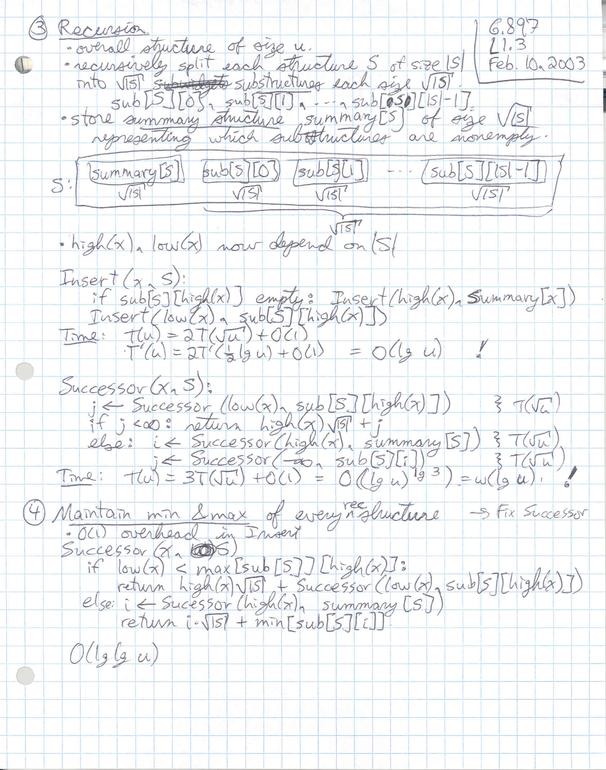 6.897
L1.3
Feb. 10, 2003
③ Recursion
• overall structure of size u.
• recursively split each structure S of size |S|
into √|S| substructures each size √|S|.
sub[S][0], sub[S][1], ..., sub[S][|S|-1].
• store summary structure, summary[S] of size √|S|
representing which substructures are nonempty.
S: summary[S] sub[S][0] sub[S][1] ... sub[S][|S|-1]
√|S| √|S| √|S| √|S|
√|S|
• high(x), low(x) now depend on |S|
Insert(x, S):
if sub[S][high(x)] empty: Insert(high(x), Summary[x])
Insert(low(x), sub[S][high(x)])
Time: T(u) = 2T(√u) + O(1)
T'(u) = 2T'(½ lg u) + O(1) = O(lg u) !
Successor(x, S):
j ← Successor(low(x), sub[S][high(x)]) } T(√u)
if j < ∞: return high(x)√|S| + j
else: i ← Successor(high(x), summary[S]) } T(√u)
j ← Successor(-∞, sub[S][i]) } T(√u)
Time: T(u) = 3T(√u) + O(1) = O((lg u)^lg 3) = ω(lg u). !
④ Maintain min & max of every rec. structure → Fix Successor
• O(1) overhead in Insert
Successor(x, S)
if low(x) < max[sub[S]][high(x)]:
return high(x)√|S| + Successor(low(x), sub[S][high(x)])
else: i ← Sucessor(high(x), summary[S])
return i·√|S| + min[sub[S][i]]
O(lg lg u)